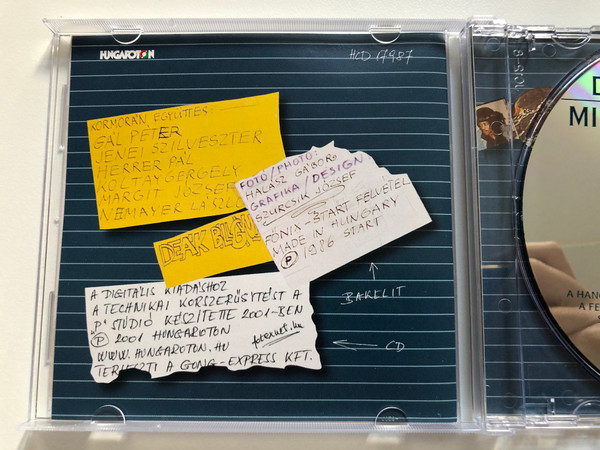 HUNGAROTON
HCD 17987
KORMORÁN EGYÜTTES:
GÁL PÉTER
JENEI SZILVESZTER
HERRER PÁL
KOLTAY GERGELY
MARGIT JÓZSEF
NÉMAYER LÁSZLÓ
DEÁK BILL
FOTÓ/PHOTO:
HALÁSZ GÁBOR
GRAFIKA/DESIGN
SZURCSIK JÓZSEF
FŐNIX-START FELVÉTEL
MADE IN HUNGARY
℗ 1986 START
BAKELIT
A DIGITÁLIS KIADÁSHOZ
A TECHNIKAI KORSZERŰSÍTÉST A
"P" STÚDIÓ KÉSZÍTETTE 2001-BEN
℗ 2001 HUNGAROTON
WWW.HUNGAROTON.HU
TERJESZTI A GONG-EXPRESS KFT.
CD
D
MI
A HANG
A FE